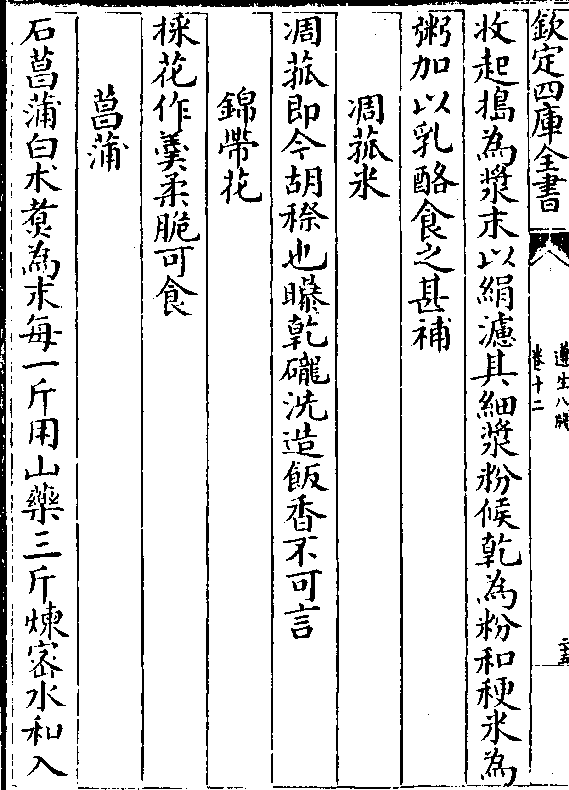 欽定四庫全書
遵生八牋
卷十二
三十五
收起搗為漿末以絹濾其細漿粉候乾為粉和稉米為
粥加以乳酪食之甚補
凋菰米
凋菰即今胡穄也曝乾礲洗造飯香不可言
錦帶花
採花作羹柔脆可食
菖蒲
石菖蒲白朮煑為末每一斤用山藥三斤煉宻水和入